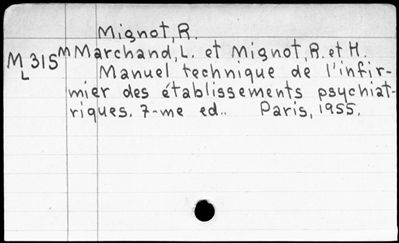 Mignot, R.
M 315 m Marchand, L. et Mignot, R. et H.
L
Manuel technique de l'infir-
mier des établissements psychiat-
riques. 7-me ed.. Paris, 1955.